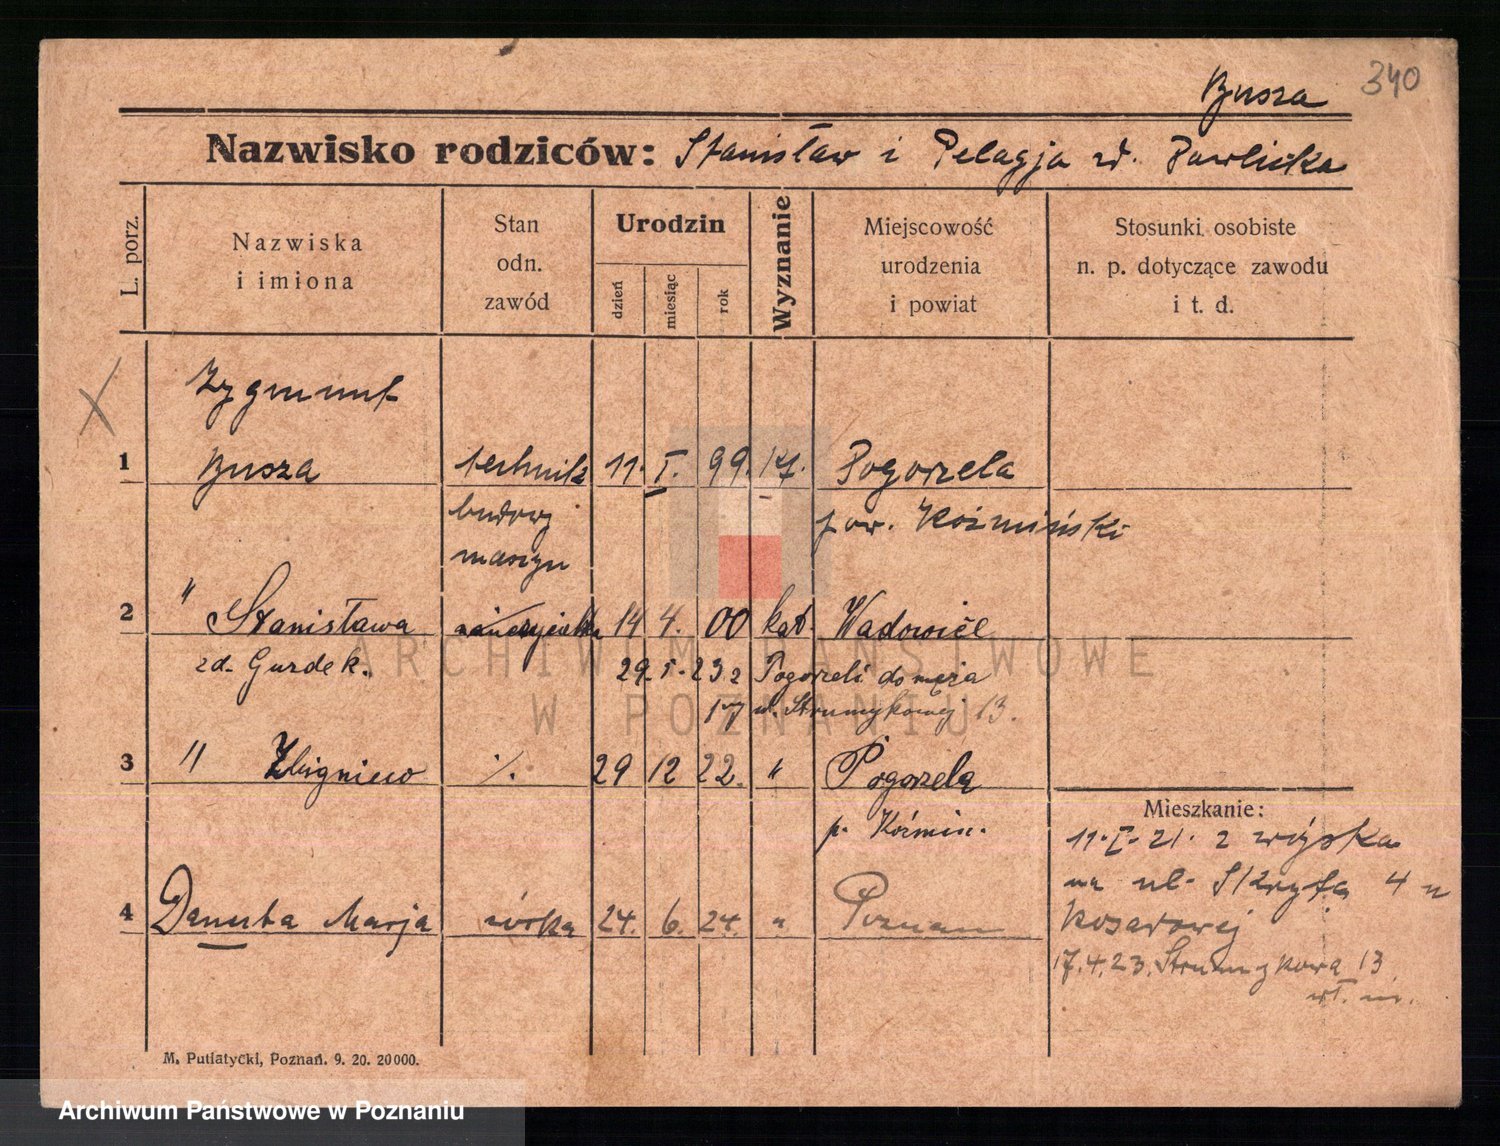 340
Busza
Nazwisko rodziców: Stanisław i Pelagja zd. Pawlicka
L. porz.
Nazwiska
i imiona
Stan
odn.
zawód
Urodzin
dzień
miesiąc
rok
Wyznanie
Miejscowość
urodzenia
i powiat
Stosunki osobiste
n. p. dotyczące zawodu
i t. d.
Zygmunt
1 Busza technik 11. I. 99. kt. Pogorzela
budowy pow. Koźmiński
maszyn
2 " Stanisława nauczycielka 14 4. 00 kat. Wadowice
zd. Gurdek. 29.5.23 z Pogorzeli do męża
ul. Strumykowej 13.
3 " Zbigniew ./. 29 12 22. " Pogorzela
p. Koźmin.
Mieszkanie:
11.I.21. z wojska
na ul. Skryta 4
4 Danuta Marja córka 24. 6. 24. " Poznan
Kosarowej
17.4.23. Strumykowa 13
M. Putiatycki, Poznań. 9. 20. 20000.
ARCHIWUM PAŃSTWOWE
W POZNANIU
Archiwum Państwowe w Poznaniu